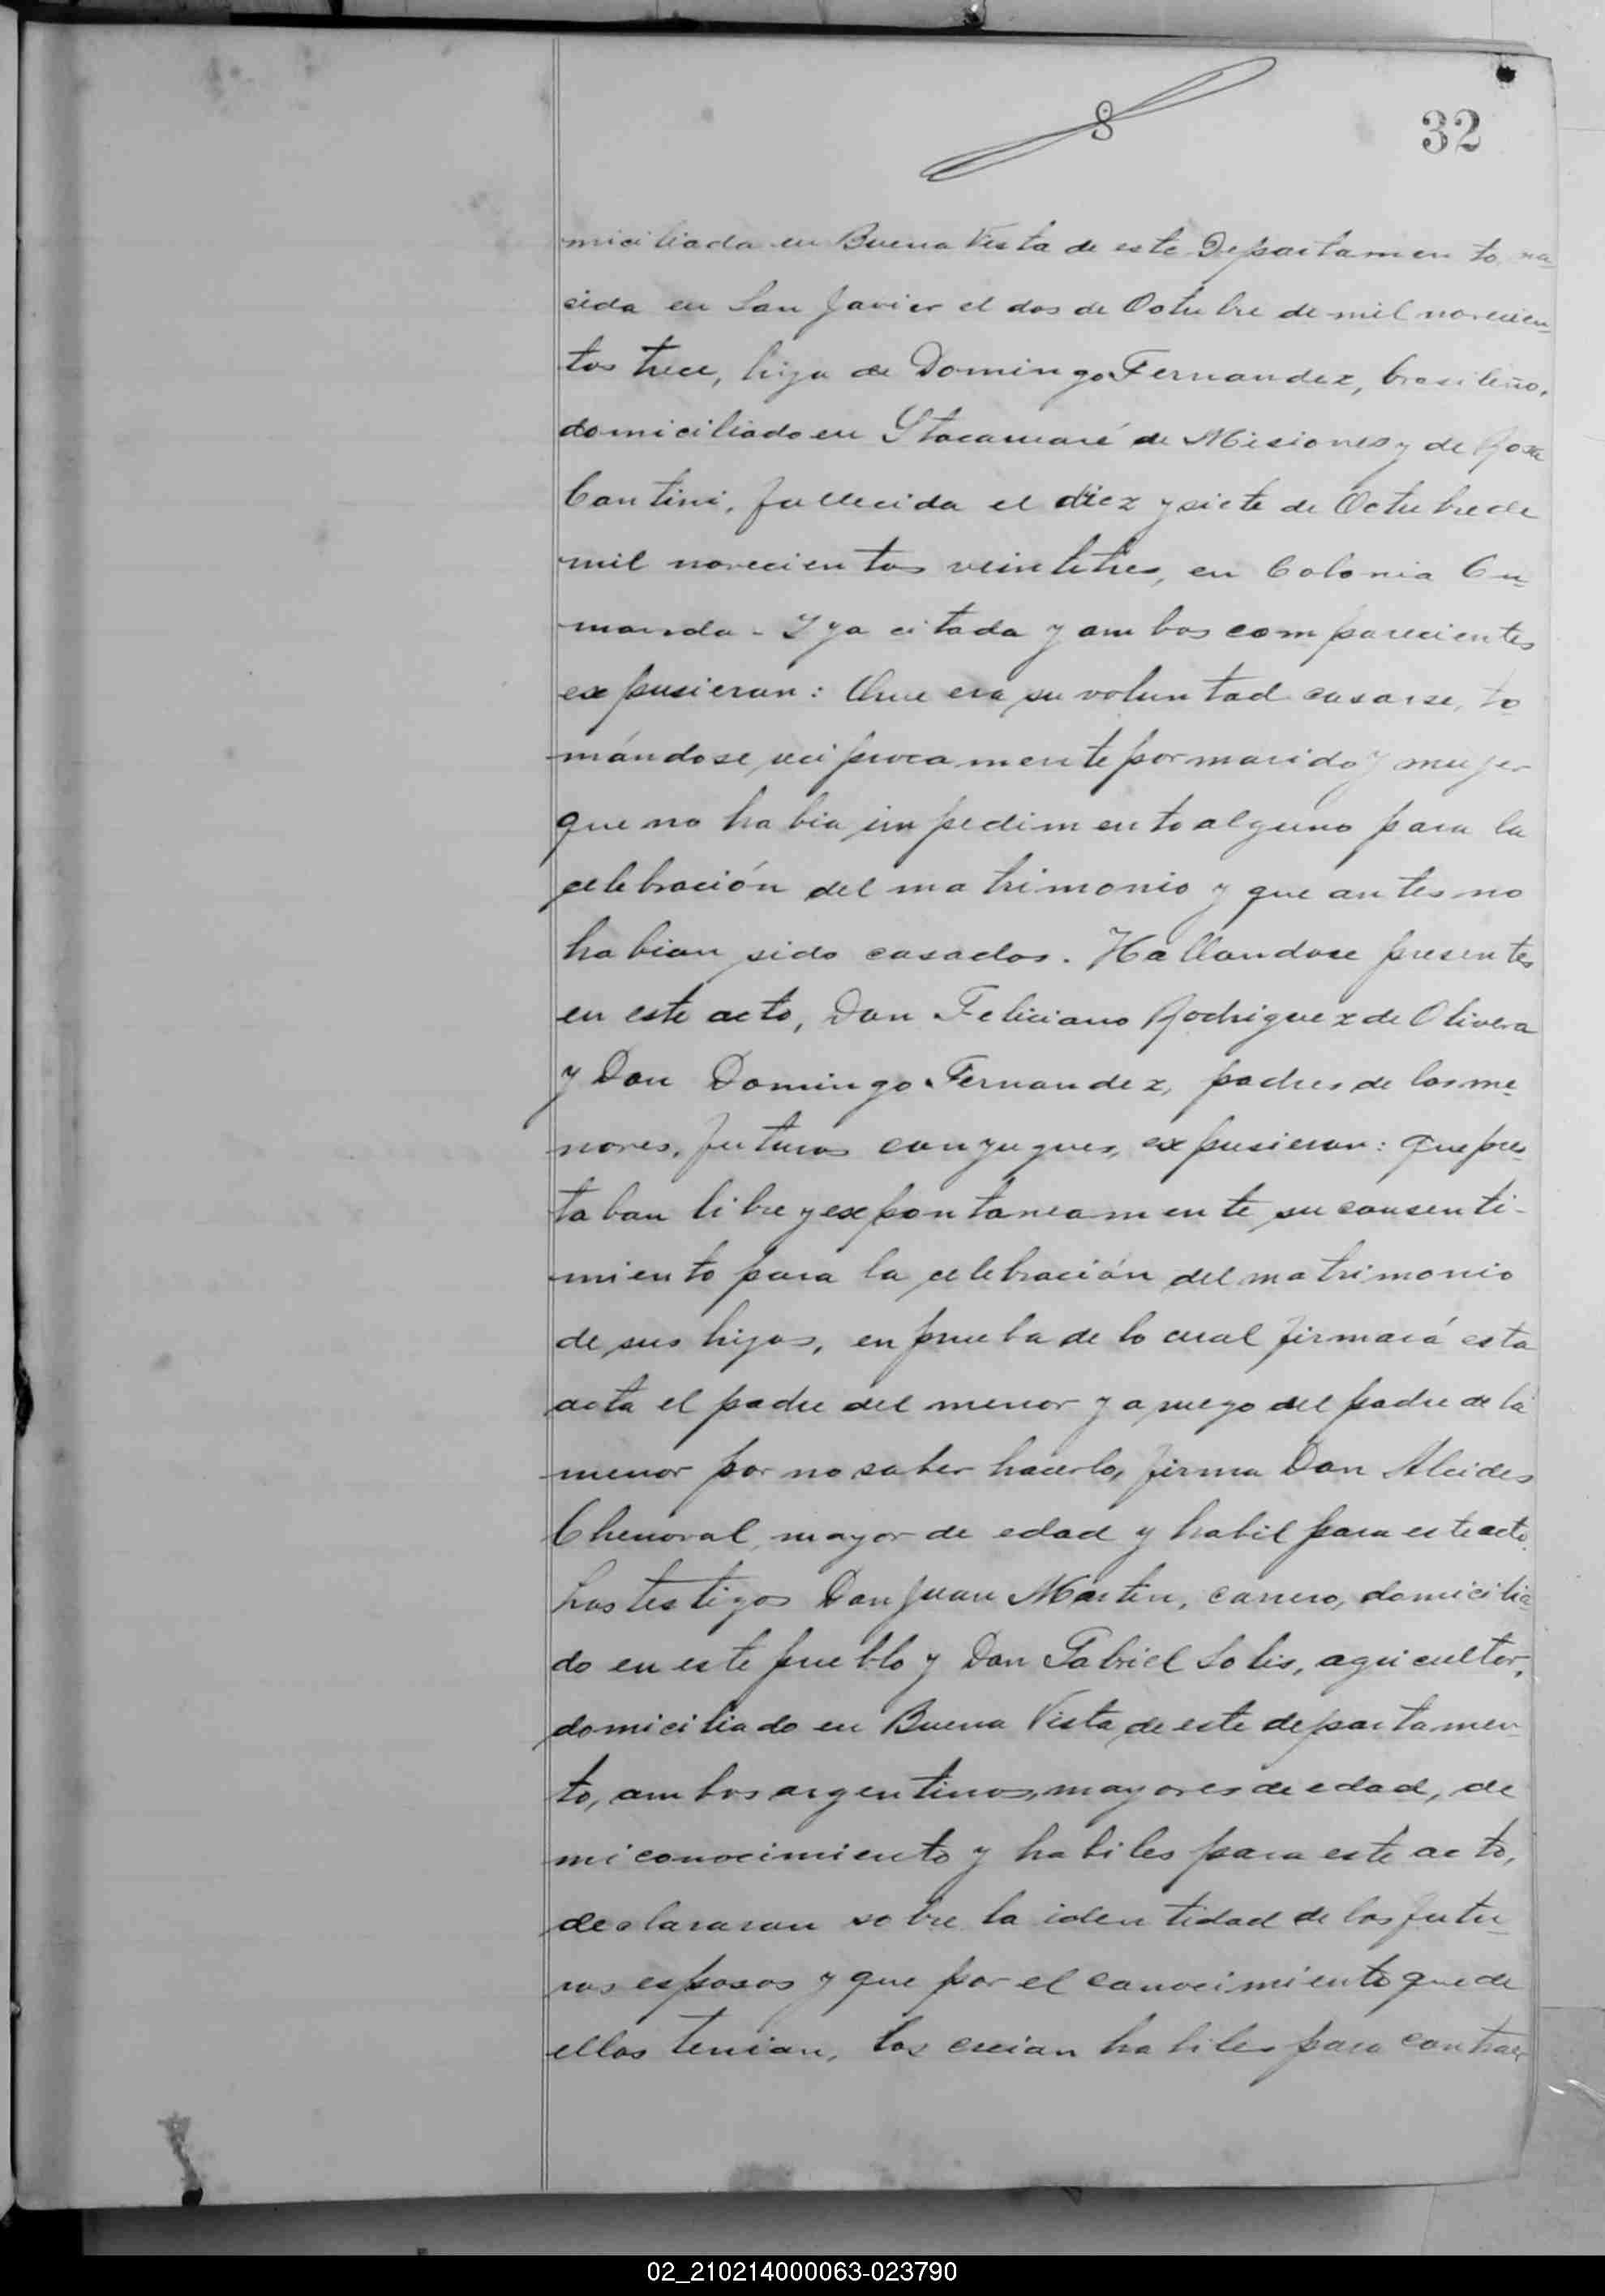 8
32
miciliada en Buena Vista de este Departamento, na-
cida en San Javier el dos de Octubre de mil novecien-
tos trece, hija de Domingo Fernandez, brasileño,
domiciliado en Itacaruaré de Misiones y de Rosa
Cantini, fallecida el diez y siete de Octubre de
mil novecientos veintitres, en Colonia
ya citada y ambos comparecientes
expusieron: Que era su voluntad casarse, to
mándose reciprocamente por marido y mujer
que no habia impedimento alguno para la
celebración del matrimonio y que antes no
habian sido casados. Hallandose presentes
en este acto, Don Feliciano Rodriguez de Olivera
y Don Domingo Fernandez, padres de los me-
nores, futuros conyugues, expusieron: que pres-
taban libre y expontaneamente su consenti-
miento para la celebración del matrimonio
de sus hijos, en prueba de lo cual firmará esta
acta el padre del menor y a ruego del padre de la
menor por no saber hacerlo, firma Don Alcides
Chenoval, mayor de edad y habil para este acto.
Los testigos Don Juan Martin, carrero, domicilia-
do en este pueblo y Don Gabriel Solis, agricultor,
domiciliado en Buena Vista de este departamen-
to, ambos argentinos, mayores de edad, de
mi conocimiento y habiles para este acto,
declararon sobre la identidad de los futu-
ros esposos y que por el conocimiento que de
ellos tenian, los creian habiles para contraer
02_210214000063-023790